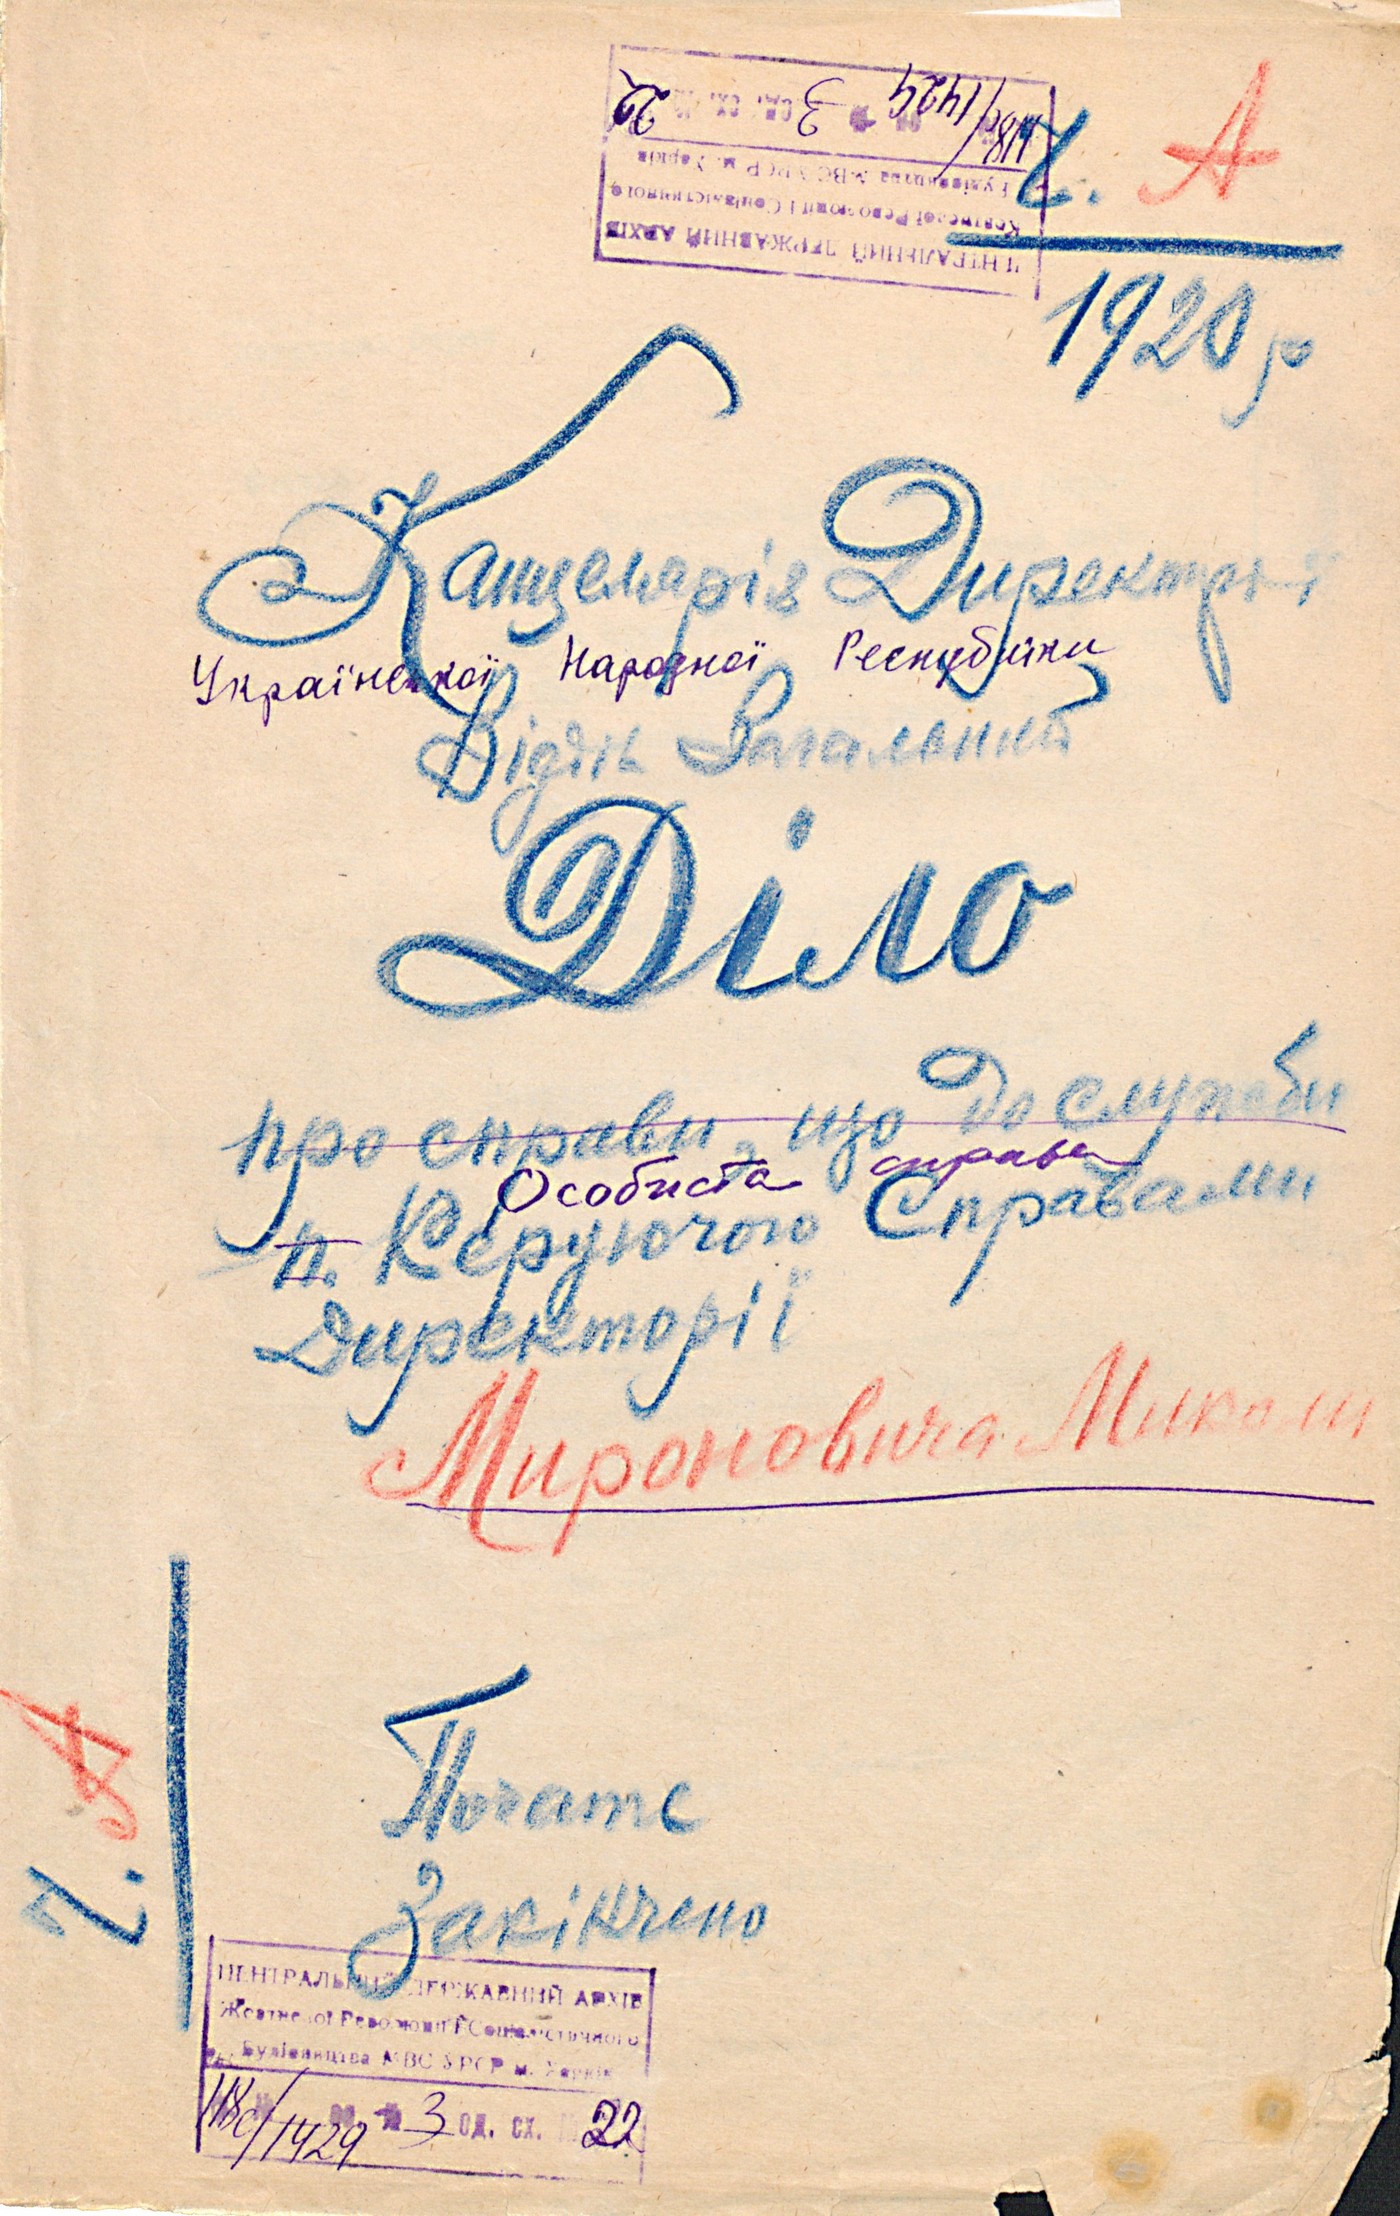 ЦЕНТРАЛЬНИЙ ДЕРЖАВНИЙ АРХІВ
Жовтневої Революції і Соціалістичного
Будівництва МВС УРСР м. Харків
1429 оп. № 3 од. сх. № 22
Ч. А
1920 р
Канцелярія Директорії
Української Народної Республіки
Відділ Загальний
Діло
про справи, що до служби
Особиста справа
п. Керуючого Справами
Директорії
Мироновича Миколи
Ч. А
Почате
Закінчено
ЦЕНТРАЛЬНИЙ ДЕРЖАВНИЙ АРХІВ
Жовтневої Революції і Соціалістичного
Будівництва МВС УРСР м. Харків
1429 оп. № 3 од. сх. № 22